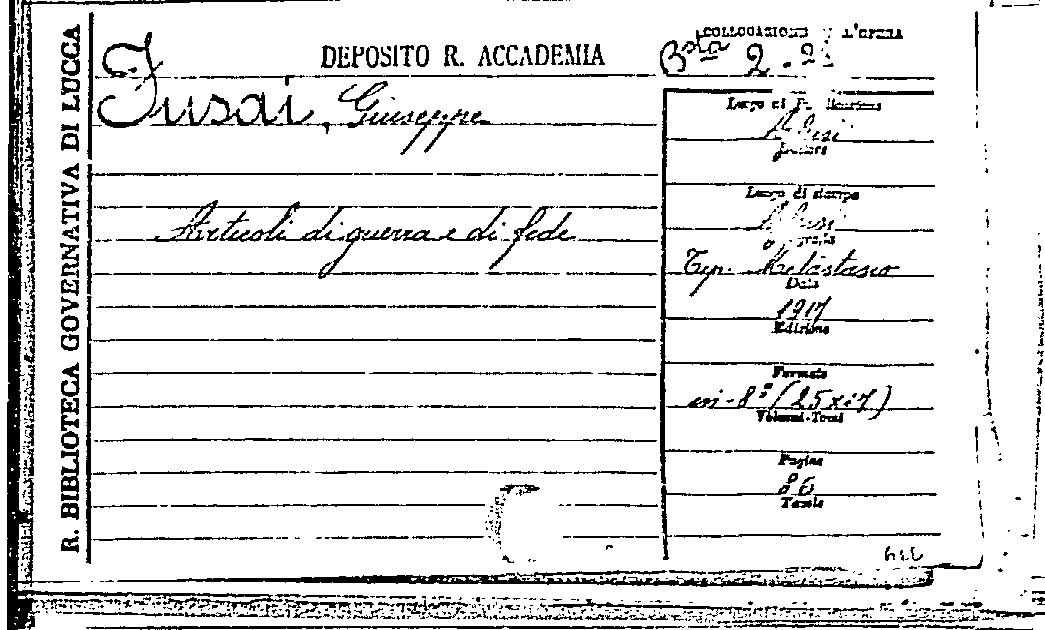 R. BIBLIOTECA GOVERNATIVA DI LUCCA
DEPOSITO R. ACCADEMIA
COLLOCAZIONE DELL'OPERA
Bsta 2.
Fusai, Giuseppe
Articoli di guerra e di fede
Luogo di Pubblicazione
Assisi
Editore
Luogo di stampa
Assisi
Tipografia
Tip. Metastasio
Data
1917
Edizione
Formato
in-8° (25x17)
Volumi-Tomi
Pagine
86
Tavole